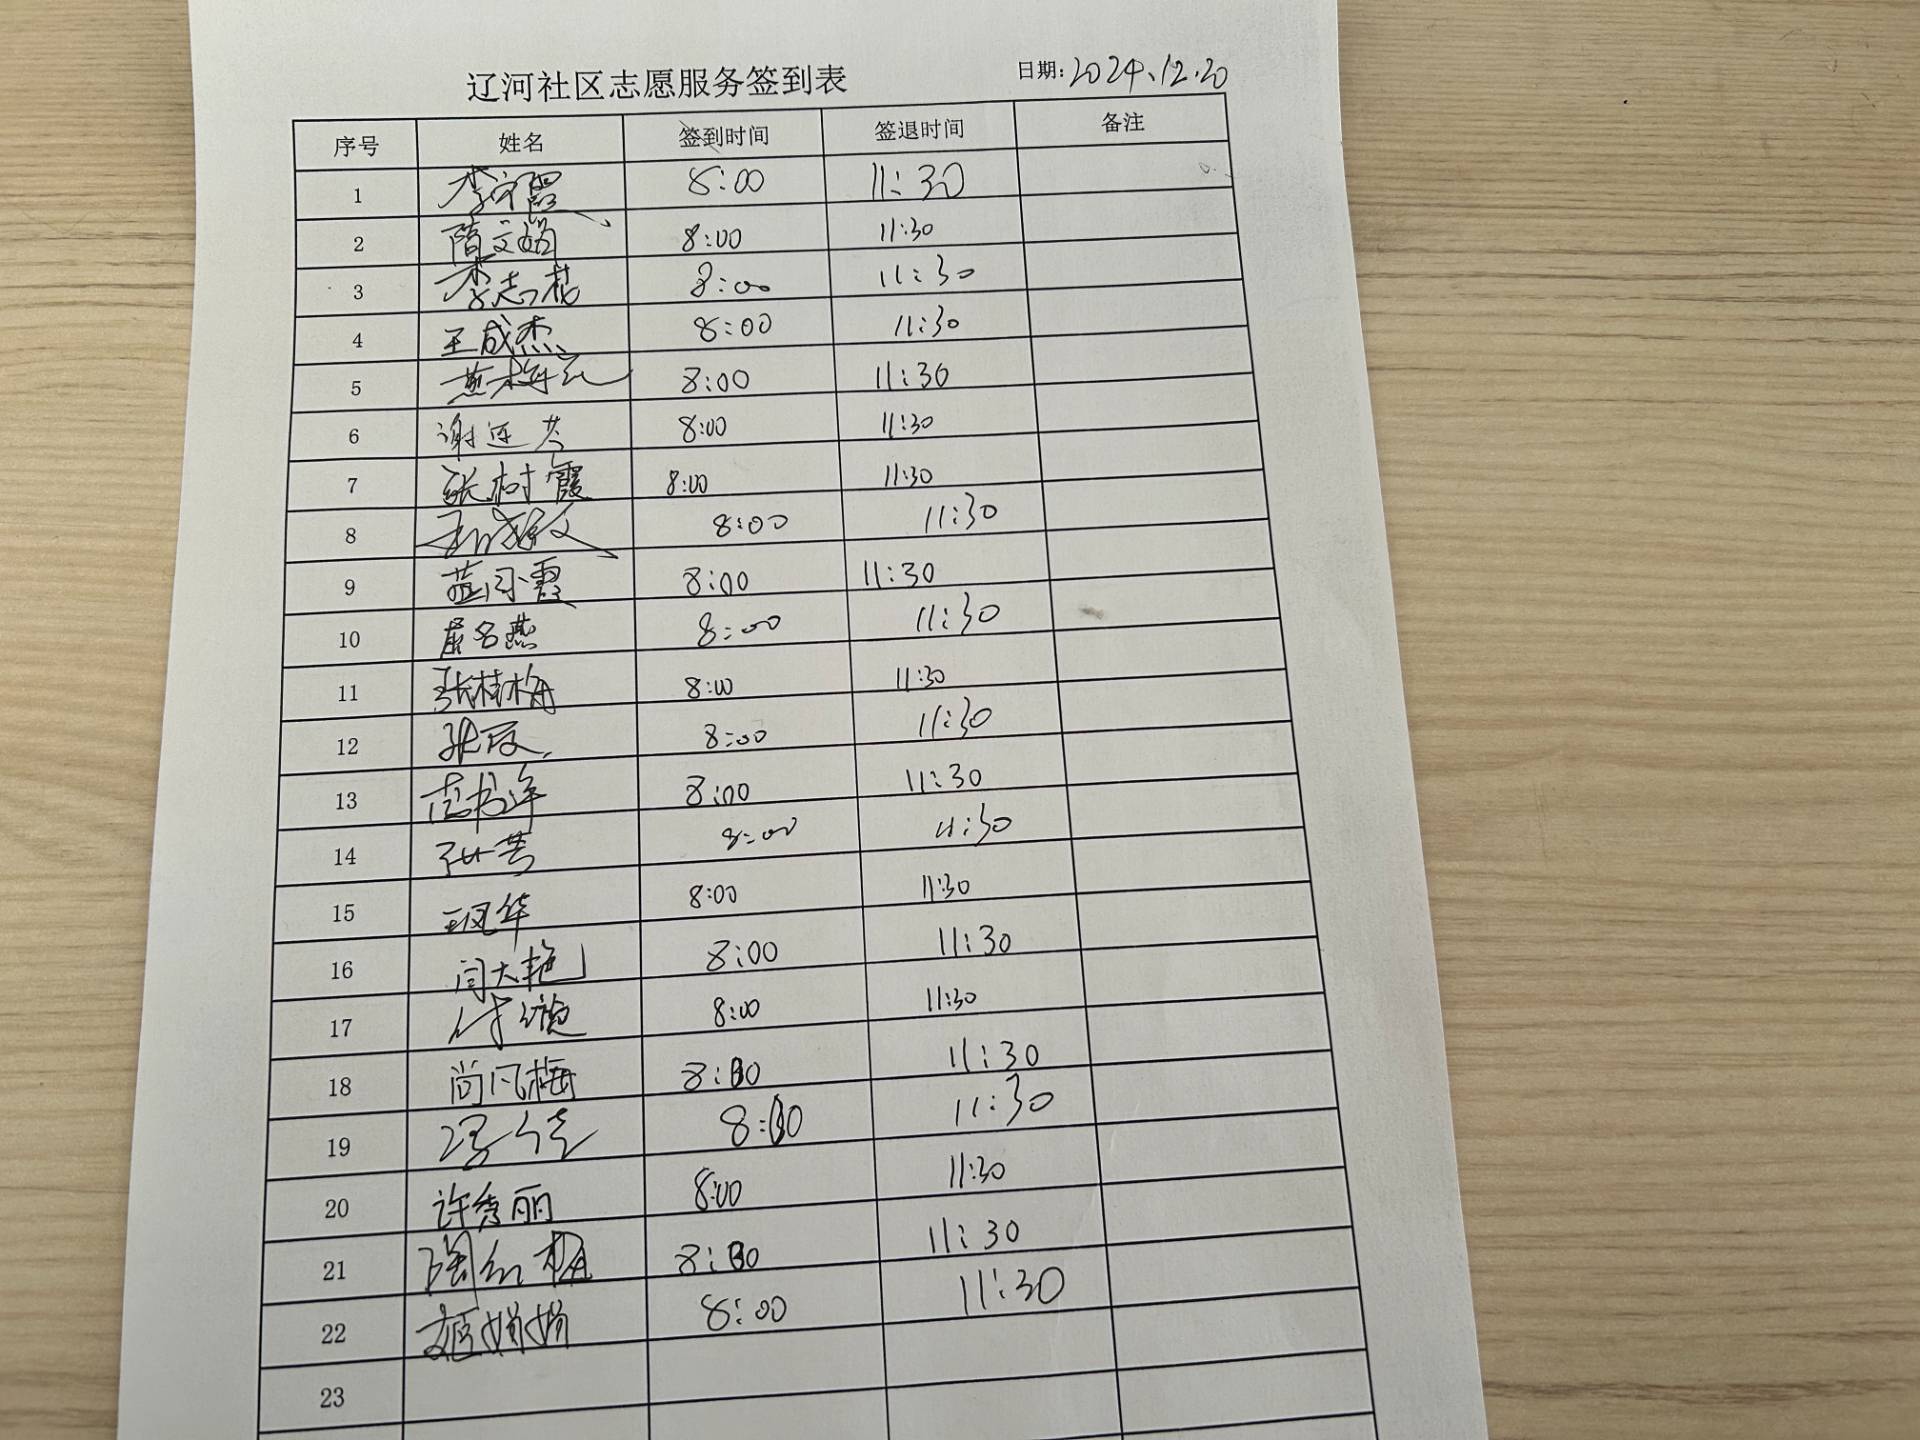 辽河社区志愿服务签到表 日期：2024.12.20
序号 姓名 签到时间 签退时间 备注
1 8:00 11:30
2 隋文娟 8:00 11:30
3 李志花 8:00 11:30
4 王成杰 8:00 11:30
5 8:00 11:30
6 谢迎芬 8:00 11:30
7 张树霞 8:00 11:30
8 8:00 11:30
9 蓝闪霞 8:00 11:30
10 崔名燕 8:00 11:30
11 张桂梅 8:00 11:30
12 8:00 11:30
13 8:00 11:30
14 孙芸 8:00 11:30
15 王凤华 8:00 11:30
16 闫大艳 8:00 11:30
17 8:00 11:30
18 尚凤梅 8:00 11:30
19 冯佳 8:00 11:30
20 许秀丽 8:00 11:30
21 陶红梅 8:00 11:30
22 姬娟娟 8:00 11:30
23